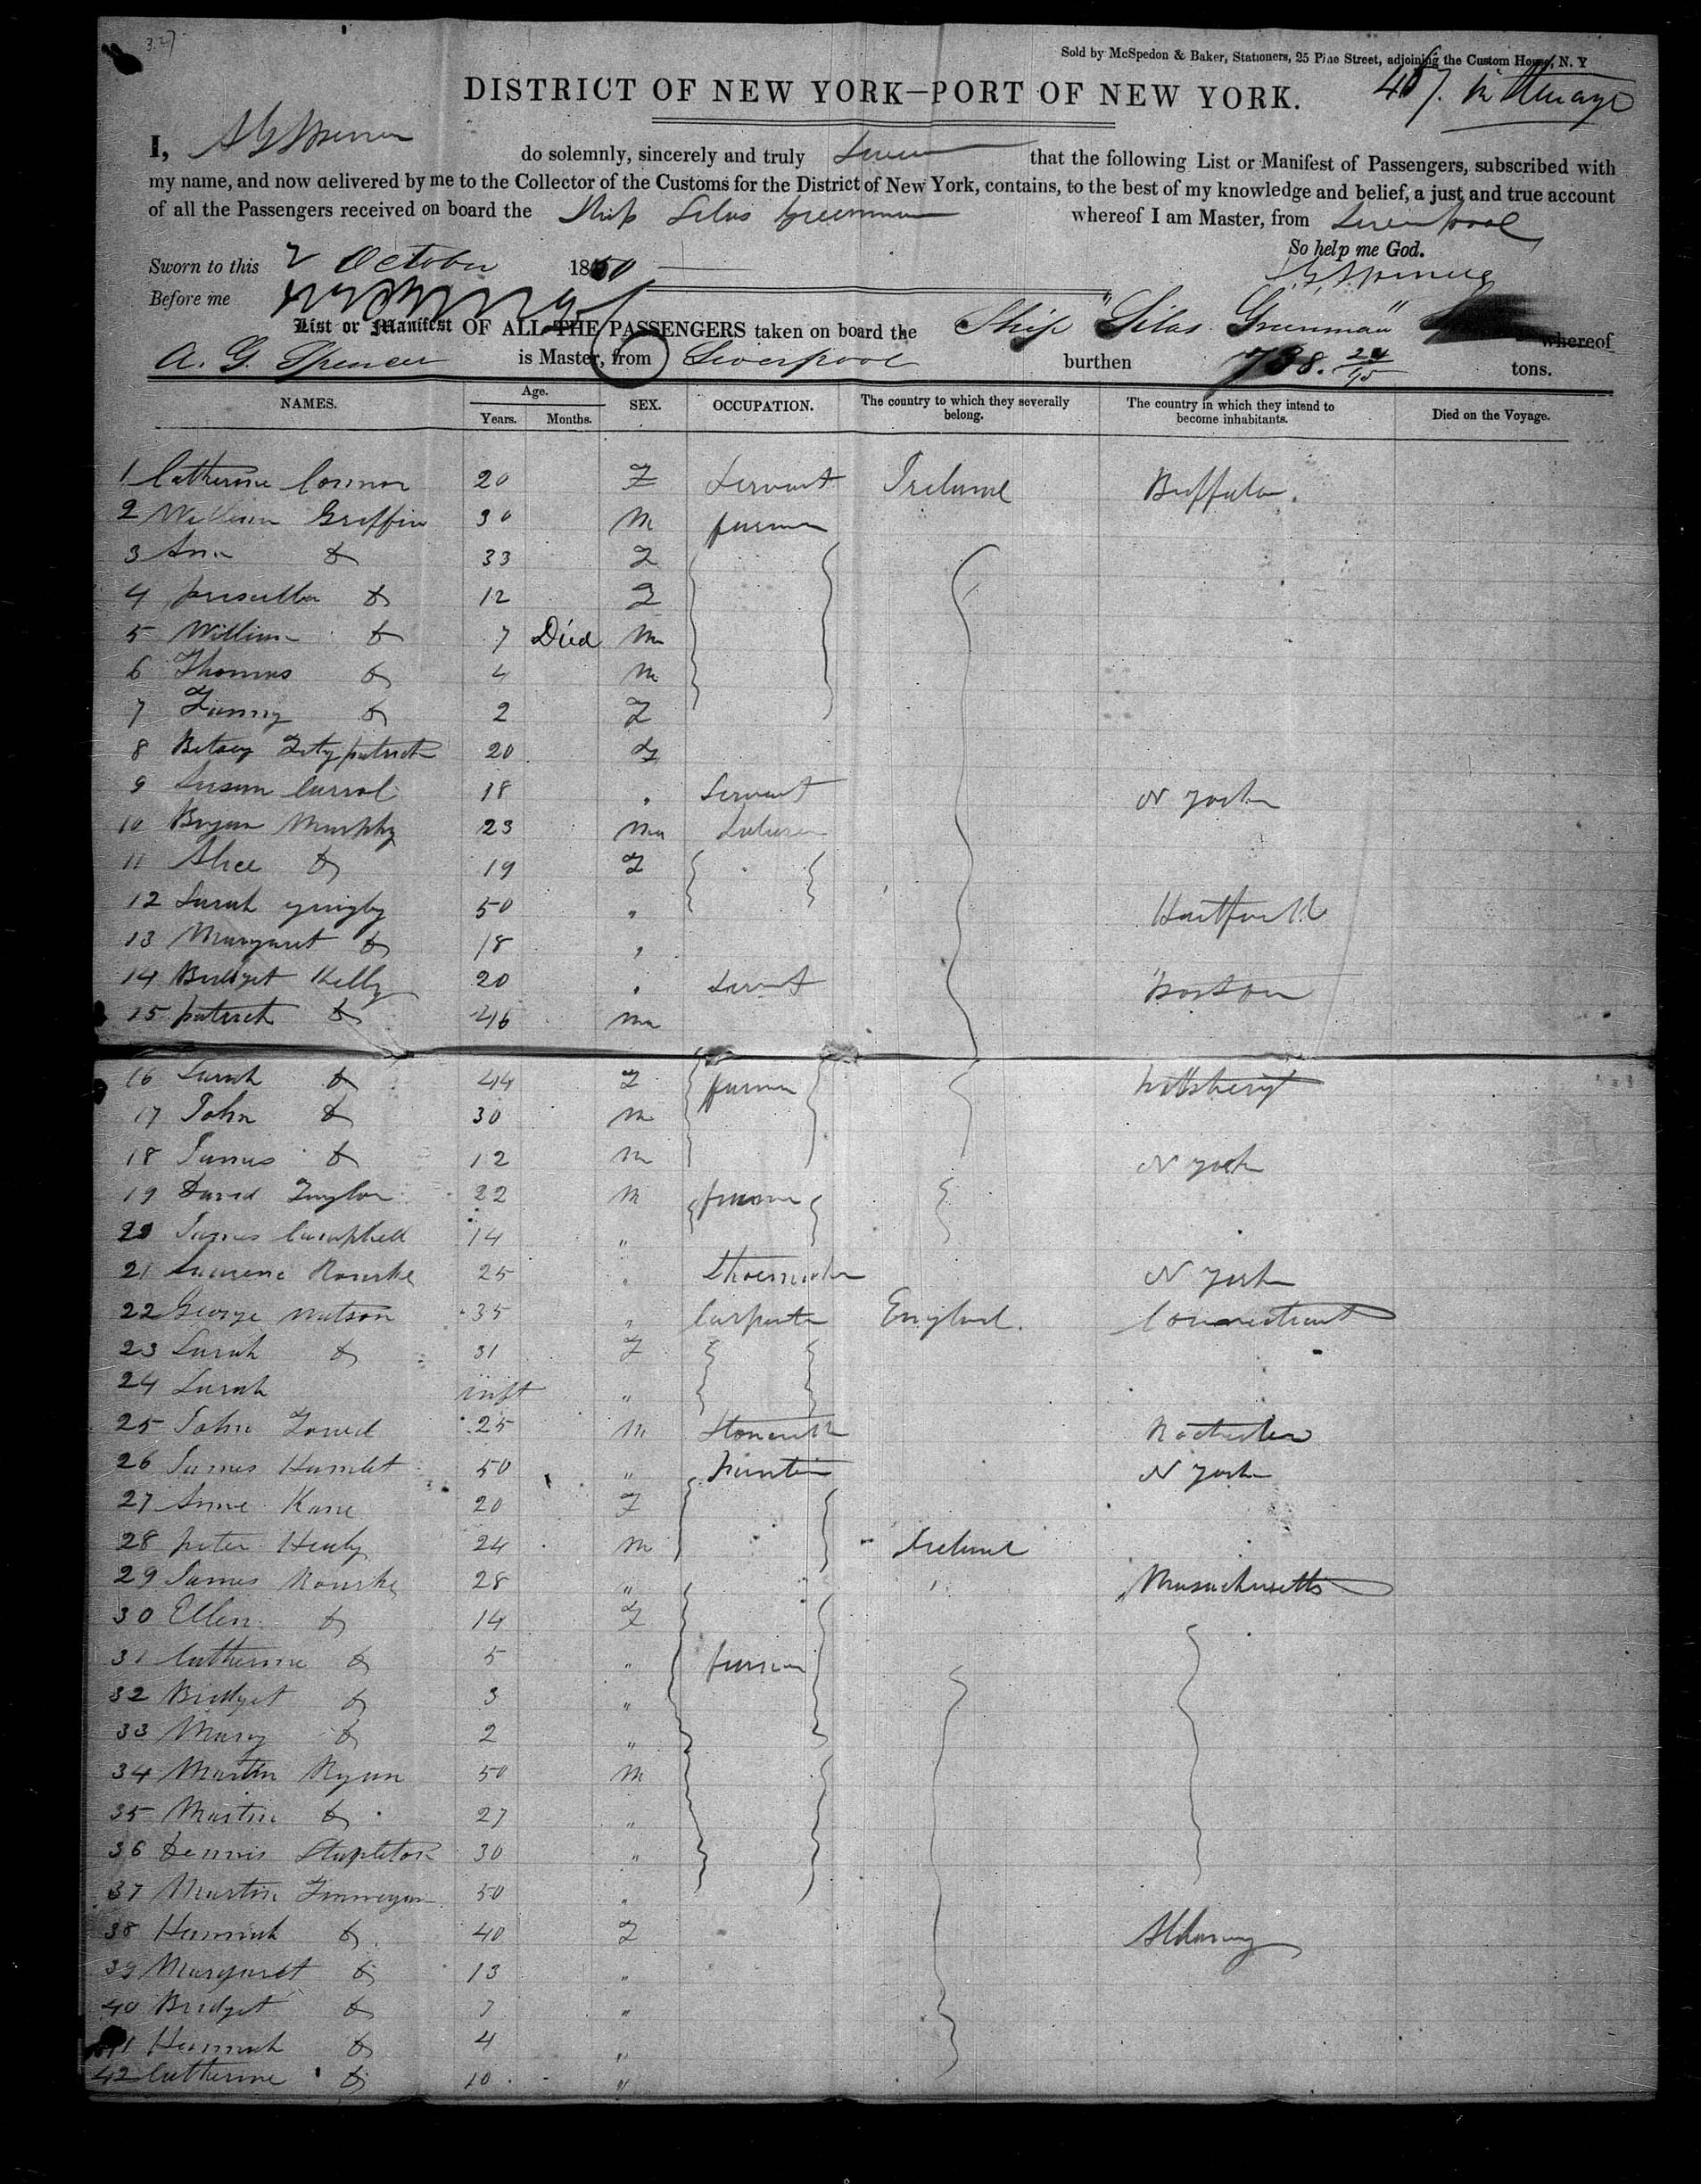 327
Sold by McSpedon & Baker, Stationers, 25 Pine Street, adjoining the Custom House, N. Y
DISTRICT OF NEW YORK—PORT OF NEW YORK.
I, A G Spencer do solemnly, sincerely and truly Swear that the following List or Manifest of Passengers, subscribed with
my name, and now delivered by me to the Collector of the Customs for the District of New York, contains, to the best of my knowledge and belief, a just and true account
of all the Passengers received on board the Ship Silas Greenman whereof I am Master, from Liverpool
So help me God.
Sworn to this 2 October 1850
A G Spencer
Before me
List or Manifest OF ALL THE PASSENGERS taken on board the Ship "Silas Greenman" whereof
A. G. Spencer is Master, from Liverpool burthen 738. 24/95 tons.
NAMES. Age. Years. Months. SEX. OCCUPATION. The country to which they severally belong. The country in which they intend to become inhabitants. Died on the Voyage.
1 Catherine Connor 20 F Servant Ireland Buffalo.
2 William Griffin 30 M farmer
3 Ann do 33 F
4 priscilla do 12 F
5 William do 7 Died M
6 Thomas do 4 M
7 Fanny do 2 F
8 Betsey Fitzpatrick 20 F
9 Susan Carrol 18 " Servant N York
10 Bryan Murphy 23 M Laborer
11 Alice do 19 F
12 Sarah 50 " Hartford
13 Margaret do 18 "
14 Bridget Kelly 20 " Servant Boston
15 patrick do 46 M
16 Sarah do 44 F farmer Pittsburgh
17 John do 30 M
18 James do 12 M N York
19 David Taylor 22 M farmer
20 James Campbell 14 "
21 Laurence Rourke 25 " Shoemaker N York
22 George Watson 35 " Carpenter England. Connecticut
23 Sarah do 31 F
24 Sarah inft "
25 John 25 M Rochester
26 James Hamlet 50 " N York
27 Anne Kane 20 F
28 peter Healy 24 M Ireland
29 James Rourke 28 " Massachusetts
30 Ellen do 14 F
31 Catherine do 5 " farmer
32 Bridget do 3 "
33 Mary do 2 "
34 Martin Ryan 50 M
35 Martin do 27 "
36 Dennis Stapleton 30 "
37 Martin Finnegan 50 "
38 Hannah do 40 F Albany
39 Margaret do 13 "
40 Bridget do 7 "
41 Hannah do 4 "
42 Catherine do 10 "